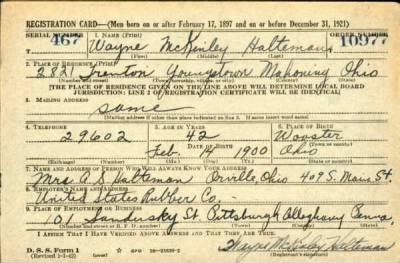 REGISTRATION CARD—(Men born on or after February 17, 1897 and on or before December 31, 1921)
SERIAL NUMBER 1. NAME (Print) ORDER NUMBER
467 Wayne McKinley Halteman 10977
(First) (Middle) (Last)
2. PLACE OF RESIDENCE (Print)
2821 Trenton Youngstown Mahoning Ohio
(Number and street) (Town, township, village, or city) (County) (State)
[THE PLACE OF RESIDENCE GIVEN ON THE LINE ABOVE WILL DETERMINE LOCAL BOARD
JURISDICTION; LINE 2 OF REGISTRATION CERTIFICATE WILL BE IDENTICAL]
3. MAILING ADDRESS
Same
[Mailing address if other than place indicated on line 2. If same insert word same]
4. TELEPHONE 5. AGE IN YEARS 6. PLACE OF BIRTH
29602 42 Wooster
DATE OF BIRTH
Feb. 14 1900 Ohio
(Exchange) (Number) (Mo.) (Day) (Yr.) (State or country)
7. NAME AND ADDRESS OF PERSON WHO WILL ALWAYS KNOW YOUR ADDRESS
Mrs. Halteman Orrville, Ohio 409 S. Main St.
8. EMPLOYER'S NAME AND ADDRESS
United States Rubber Co.
9. PLACE OF EMPLOYMENT OR BUSINESS
101 Sandusky St. Pittsburgh Allegheny Penna.
(Number and street or R. F. D. number) (Town) (County) (State)
I AFFIRM THAT I HAVE VERIFIED ABOVE ANSWERS AND THAT THEY ARE TRUE.
D. S. S. Form 1
(Revised 1-1-42) (over)
Wayne McKinley Halteman